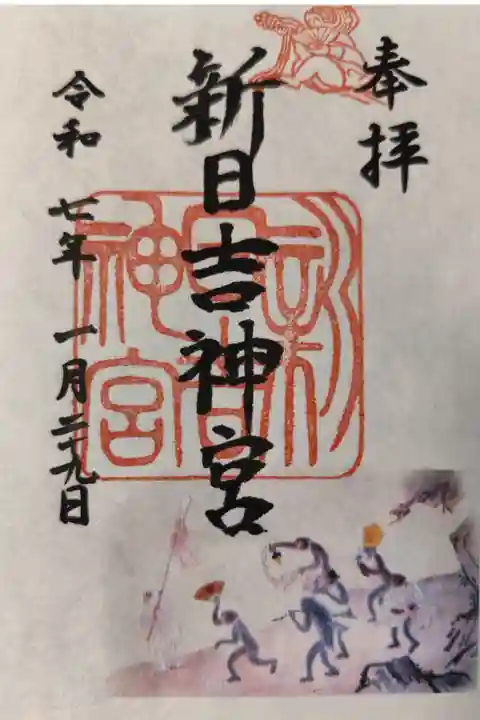 奉拝
新日吉神宮
新日吉神宮
令和 七年 一月二十九日